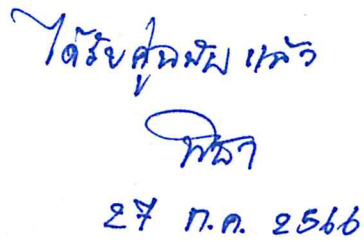 ได้รับคู่ฉบับแล้ว
พิธา
27 ก.ค. 2566